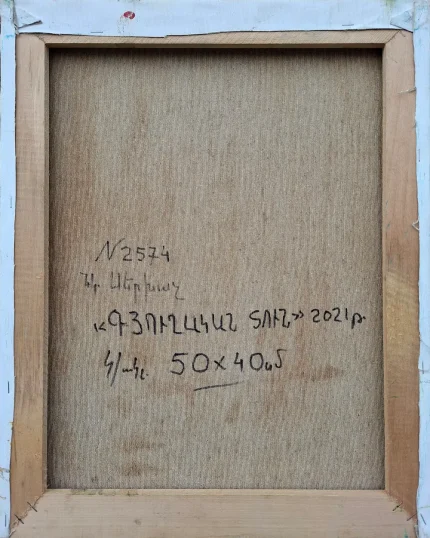 N2574
Նկ. Սերխաչ
«ԳՅՈՒՂԱԿԱՆ ՏՈՒՆ» 2021թ.
կ/յուղ. 50x40սմ